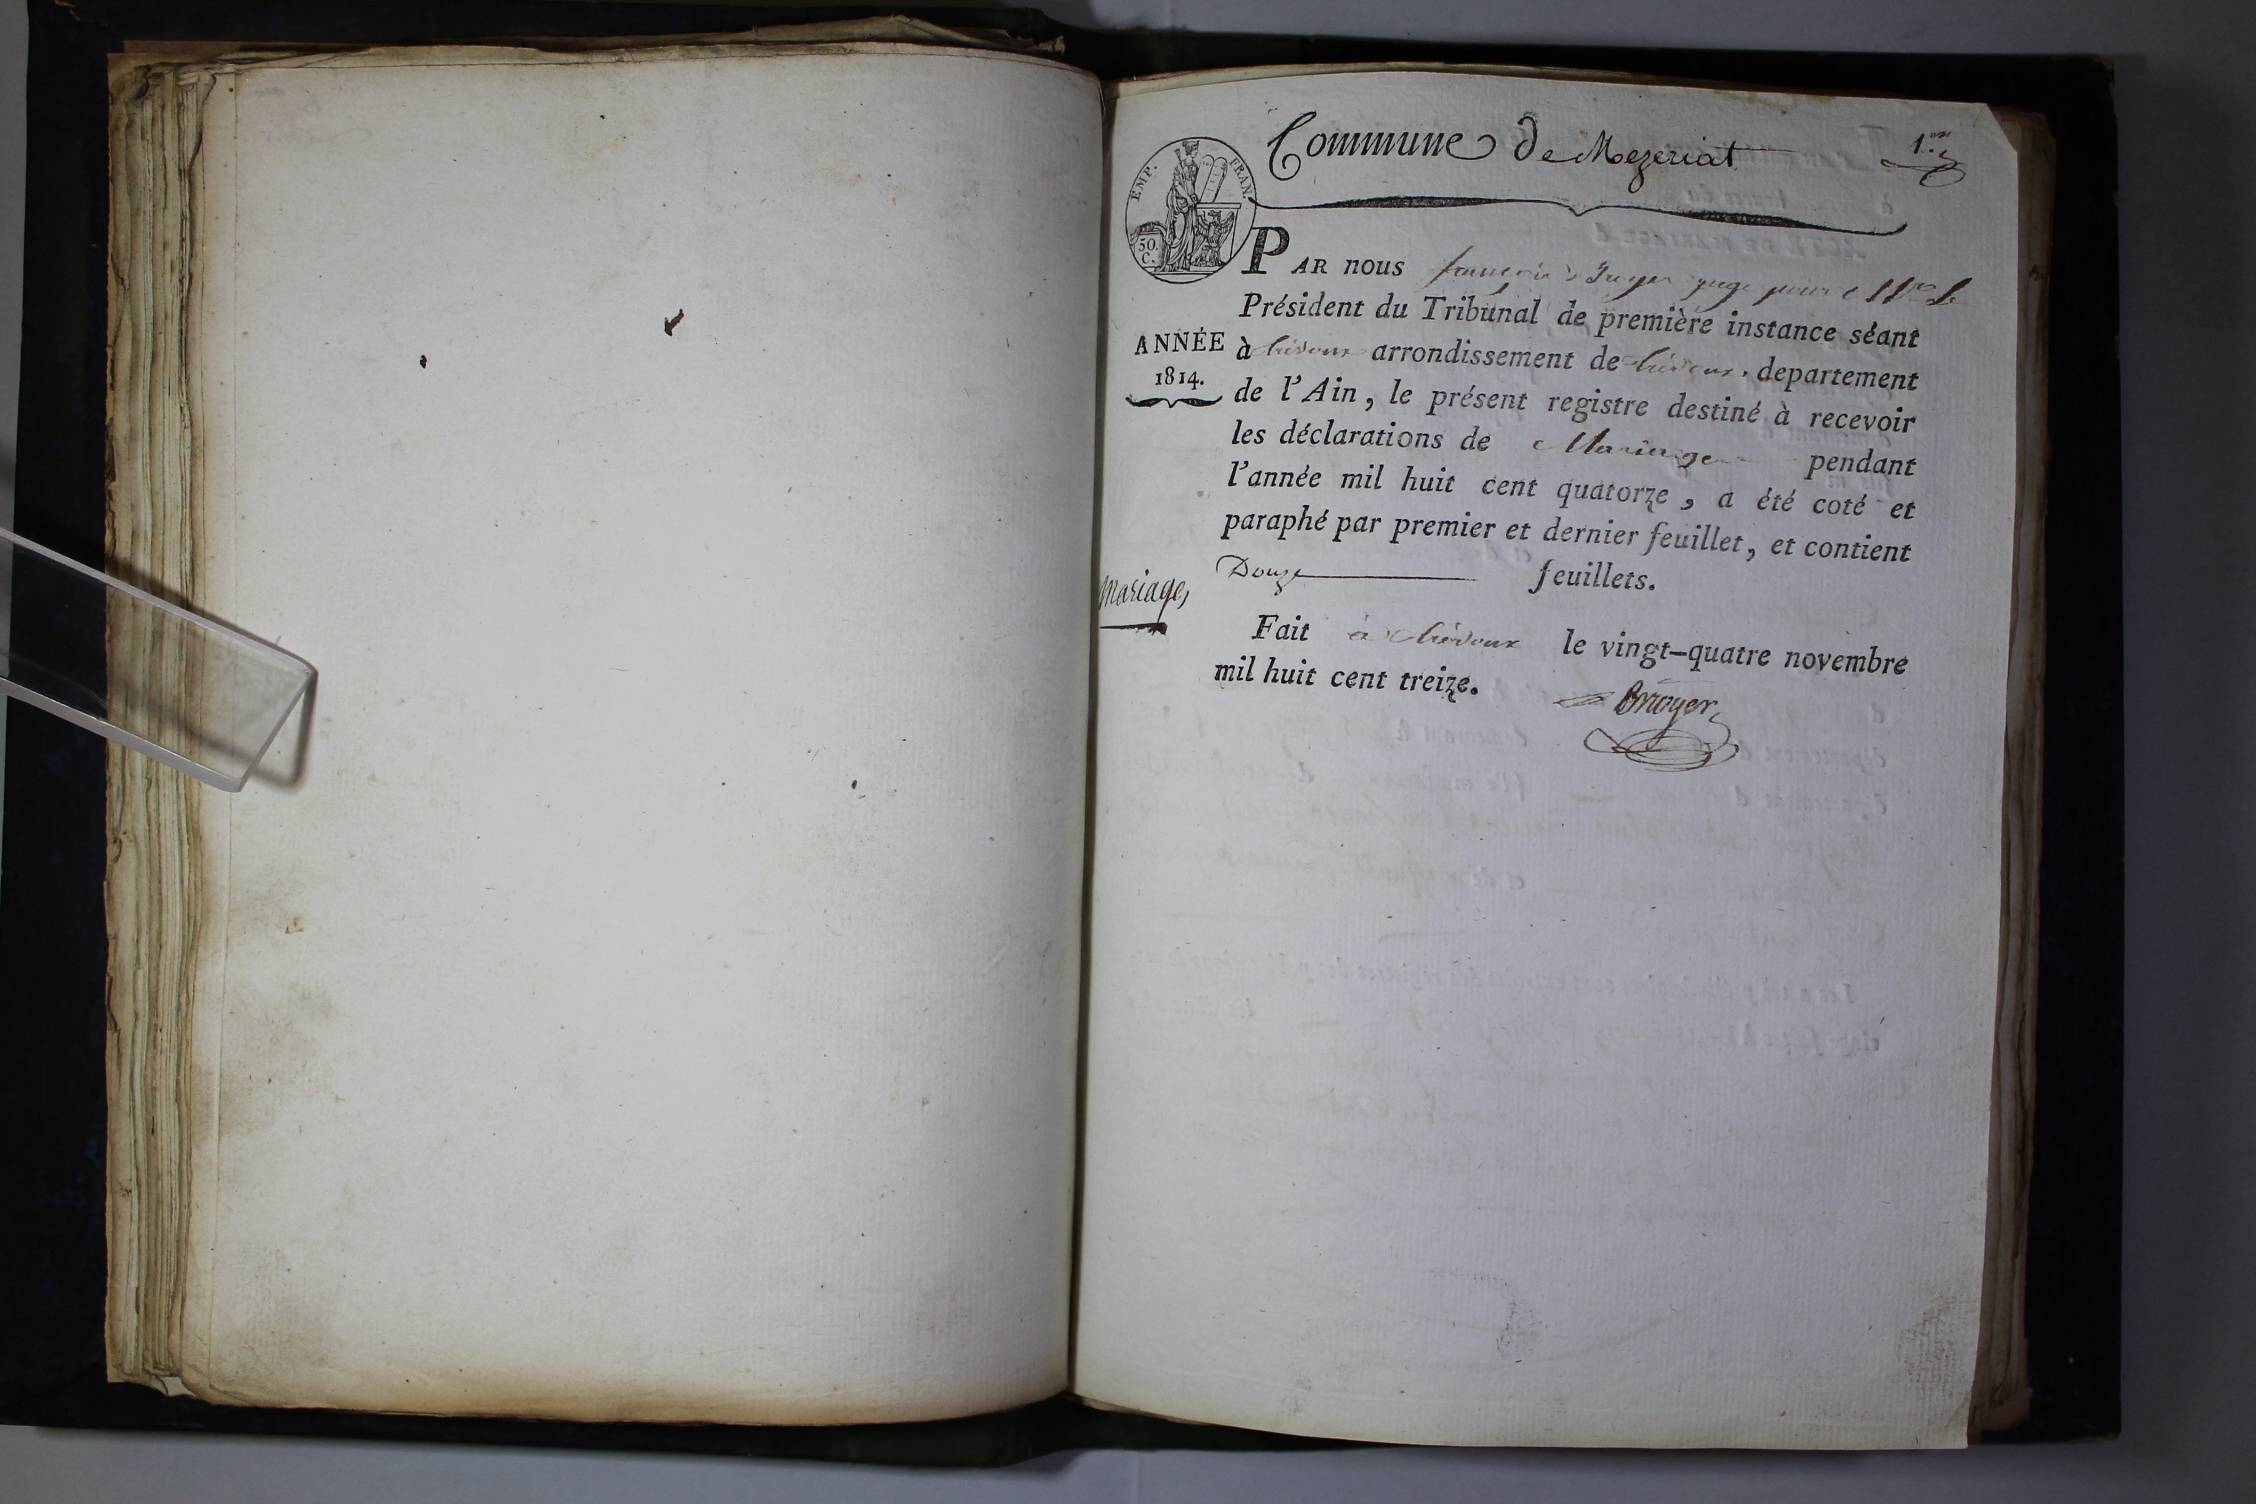 Commune de Mezeriat
1.er
EMP. FRAN.
50.
C.
PAR nous françois Bruyer juge pour M. le
Président du Tribunal de première instance séant
ANNÉE
1814.
à trévoux arrondissement de trévoux, departement
de l'Ain, le présent registre destiné à recevoir
les déclarations de Mariage pendant
l'année mil huit cent quatorze, a été coté et
paraphé par premier et dernier feuillet, et contient
Douze feuillets.
mariage,
Fait à trévoux le vingt-quatre novembre
mil huit cent treize.